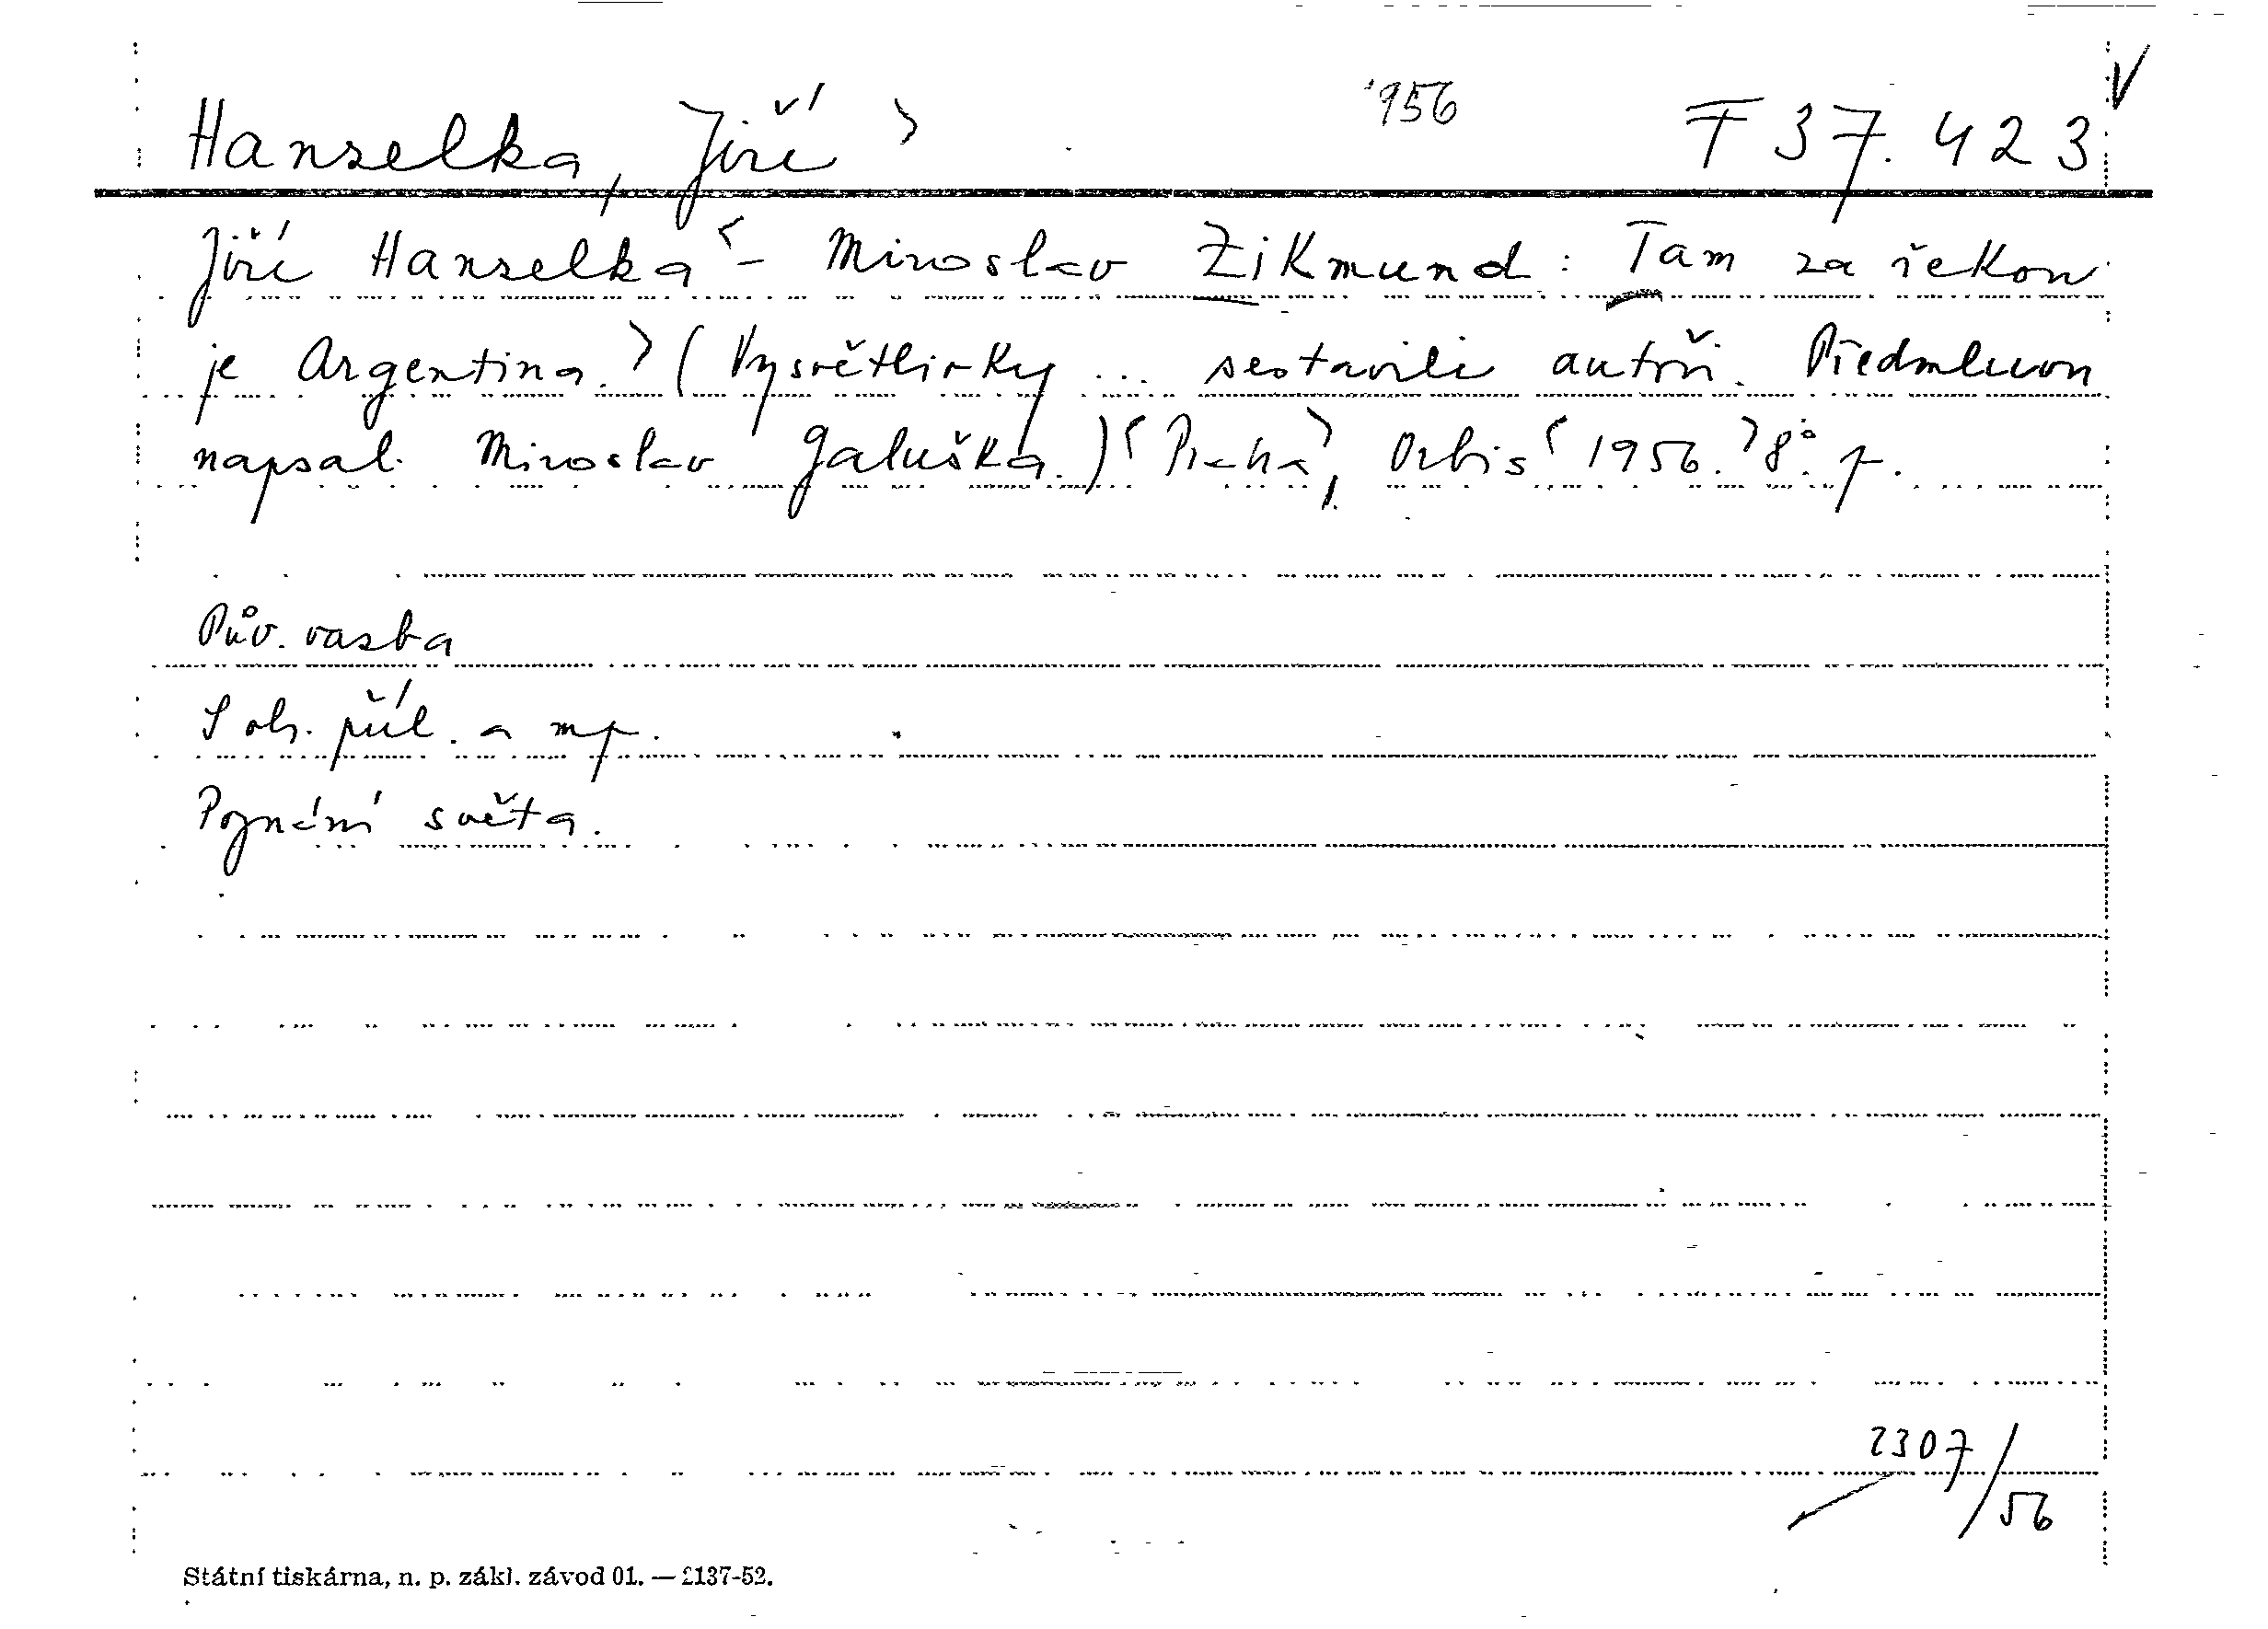 Hanzelka, Jiří > '956 F 37.423 V
Jiří Hanzelka < - Miroslav Zikmund: Tam za řekou
je Argentina. > (Vysvětlivky ... sestavili autoři. Předmluvou
napsal Miroslav Galuška.) < Praha >, Orbis < 1956. > 8°. p.
Pův. vazba
S obr. příl. a mp.
Poznání světa.
2307/56
Státní tiskárna, n. p. zákl. závod 01. — 2137-52.